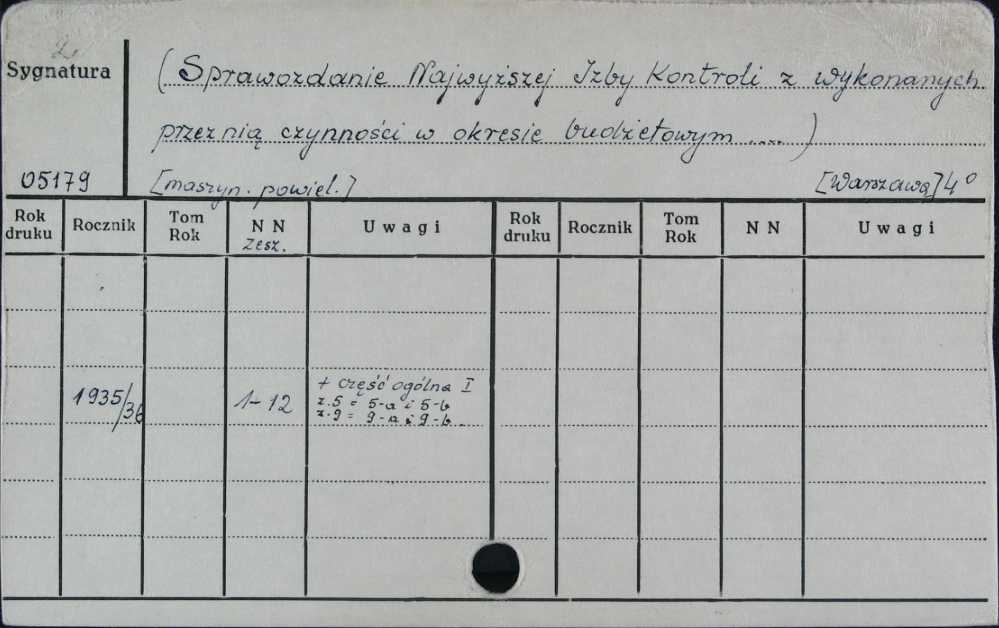 2
Sygnatura
(Sprawozdanie Najwyższej Izby Kontroli z wykonanych
przez nią czynności w okresie budżetowym ....)
05179 [maszyn. powiel.] [Warszawa] 4°
Rok druku Rocznik Tom Rok N N Zesz. Uwagi Rok druku Rocznik Tom Rok N N Uwagi
1935/36 1-12 + część ogólna I
z.5 = 5-a i 5-b
z.9 = 9-a i 9-b.